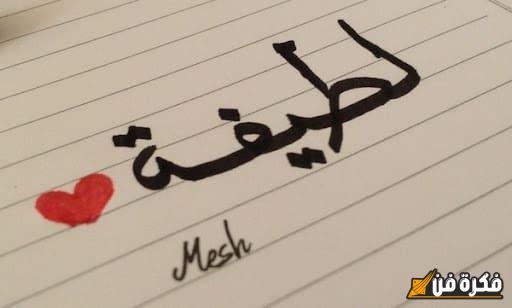 لطيفة
Mesh
فكرة فن